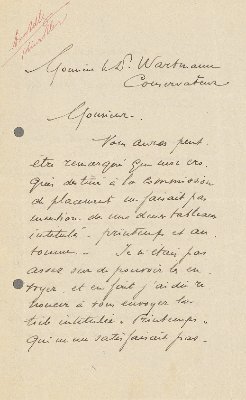 Monsieur le Dr. Wartmann
Conservateur
Monsieur.
Vous aurez peut
etre remarqué que mes cro
quis destinés à la Commission
de placement ne faisait pas
mention de mes deux tableaux
intitulé - printemps et au
tomne - Je n'étais pas
assez sur de pouvoir les en
voyer et en fait j'ai dû re
noncer à vous envoyer la
toile intitulée - Printemps -
qui ne me satisfaisait pas -